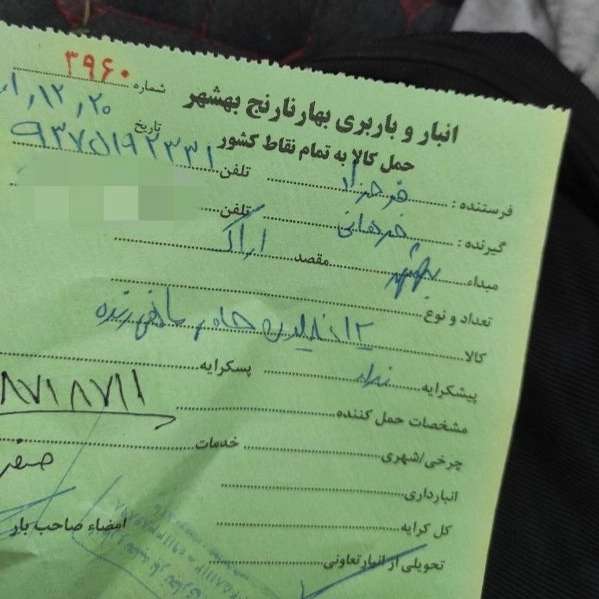 شماره ۳۹۶۰
انبار و باربری بهار نارنج بهشهر
۲۰ , ۱۲ ,
حمل کالا به تمام نقاط کشور
تاریخ
فرستنده : فرحزاد تلفن ۹۳۷۵۱۹۲۳۳۱
گیرنده : فرهانی تلفن
مبداء بهشهر مقصد اراک
تعداد و نوع
کالا ۱۲ ماهی زنده
پیشکرایه ندارد پسکرایه
مشخصات حمل کننده ۸۷۱۸۷۱۱
چرخی/شهری خدمات
انبارداری
کل کرایه
تحویلی از انبار تعاونی امضاء صاحب بار